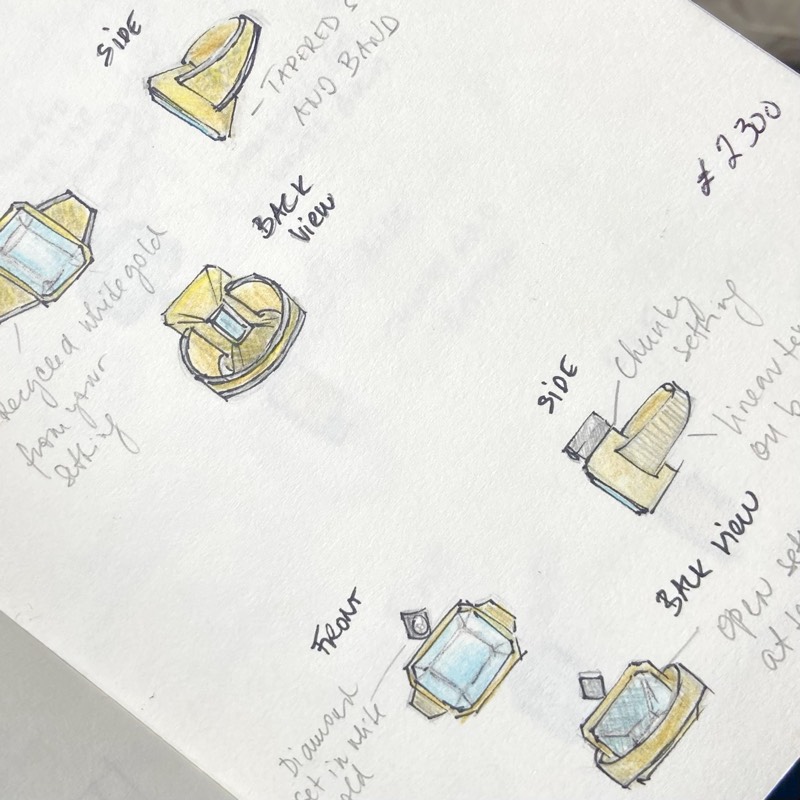 SIDE
TAPERED
AND BAND
£2300
BACK
view
Recycled white gold
from your
setting
SIDE
Chunky
setting
linear
on
BACK view
open
at
FRONT
Diamond
set in white
gold